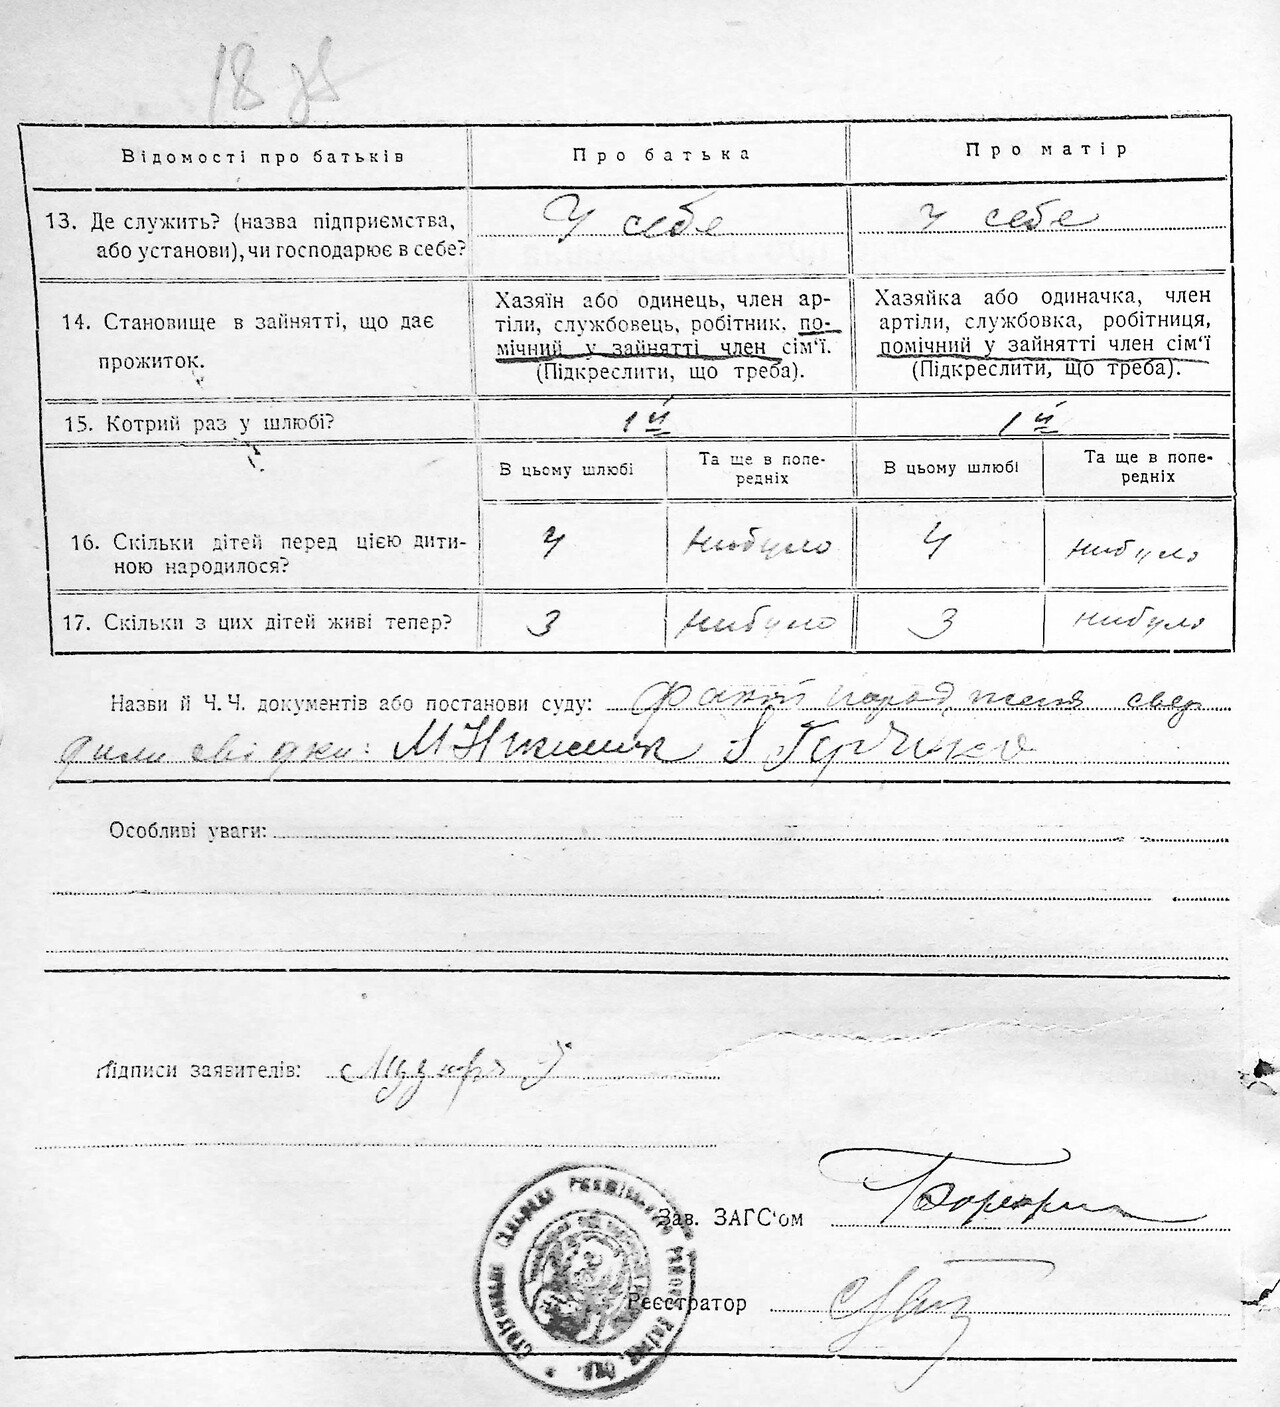 18
Відомості про батьків
Про батька
Про матір
13. Де служить? (назва підприємства,
або установи), чи господарює в себе?
У себе
У себе
14. Становище в зайнятті, що дає
прожиток.
Хазяїн або одинець, член ар-
тіли, службовець, робітник, по-
мічний у зайнятті член сім'ї.
(Підкреслити, що треба).
Хазяйка або одиначка, член
артіли, службовка, робітниця,
помічний у зайнятті член сім'ї
(Підкреслити, що треба).
15. Котрий раз у шлюбі?
1й
1й
В цьому шлюбі
Та ще в попе-
редніх
В цьому шлюбі
Та ще в попе-
редніх
16. Скільки дітей перед цією дити-
ною народилося?
4
нибуло
4
нибуло
17. Скільки з цих дітей живі тепер?
3
нибуло
3
нибуло
Назви й Ч.Ч. документів або постанови суду: Факт
свідки:
Особливі уваги:
Підписи заявителів:
Зав. ЗАГС'ом
Реєстратор